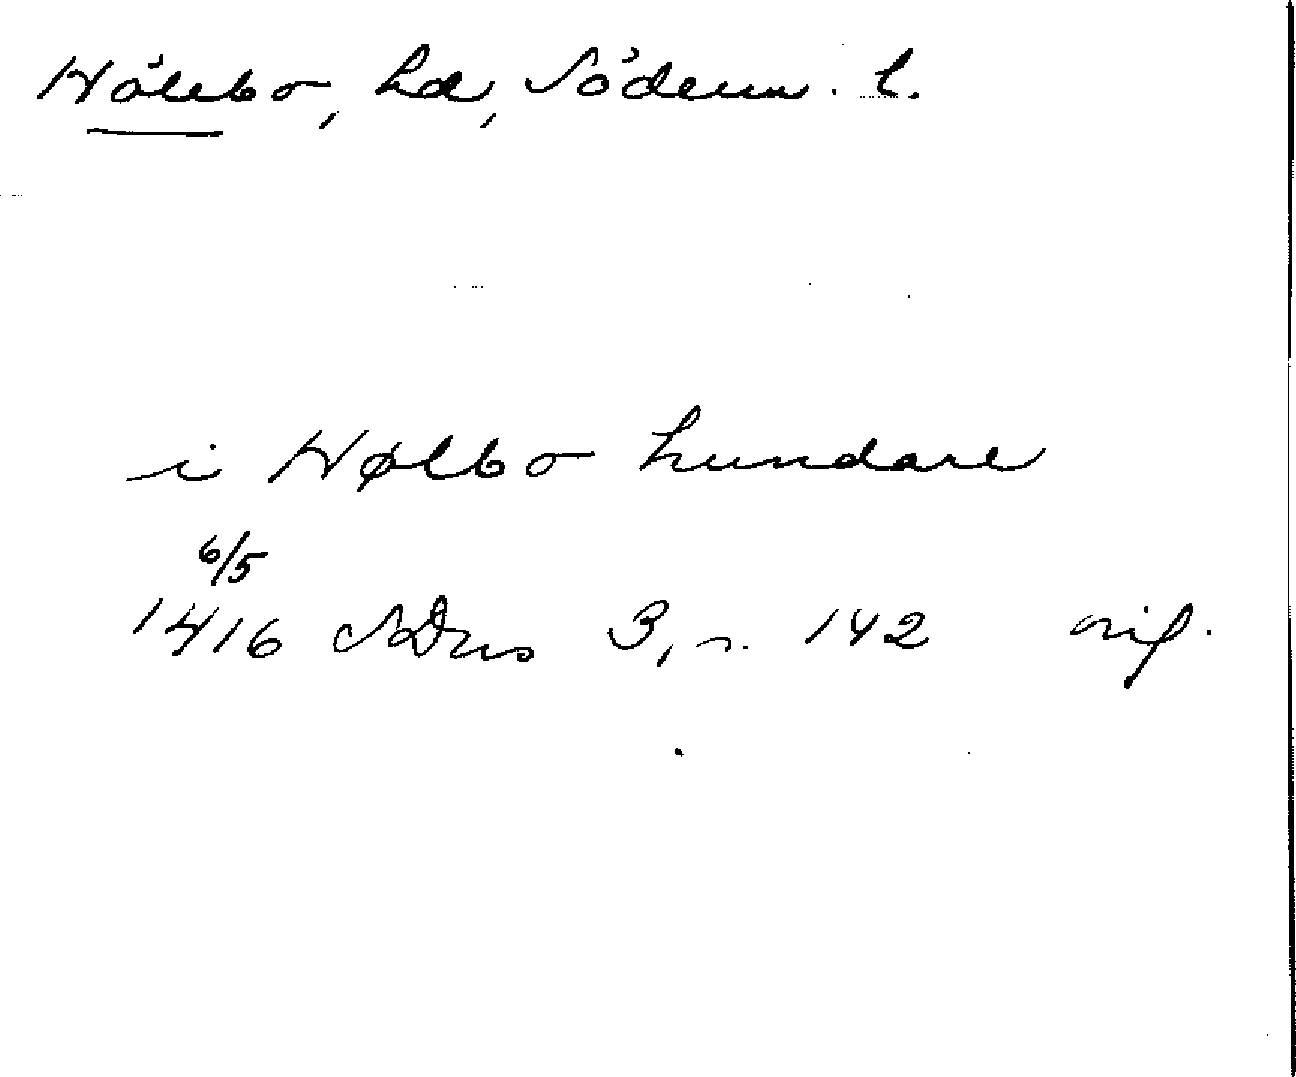 Hölebo, hd, Söderm. l.
i Hølbo hundare
6/5
1416 SDns 3, s. 142 orig.